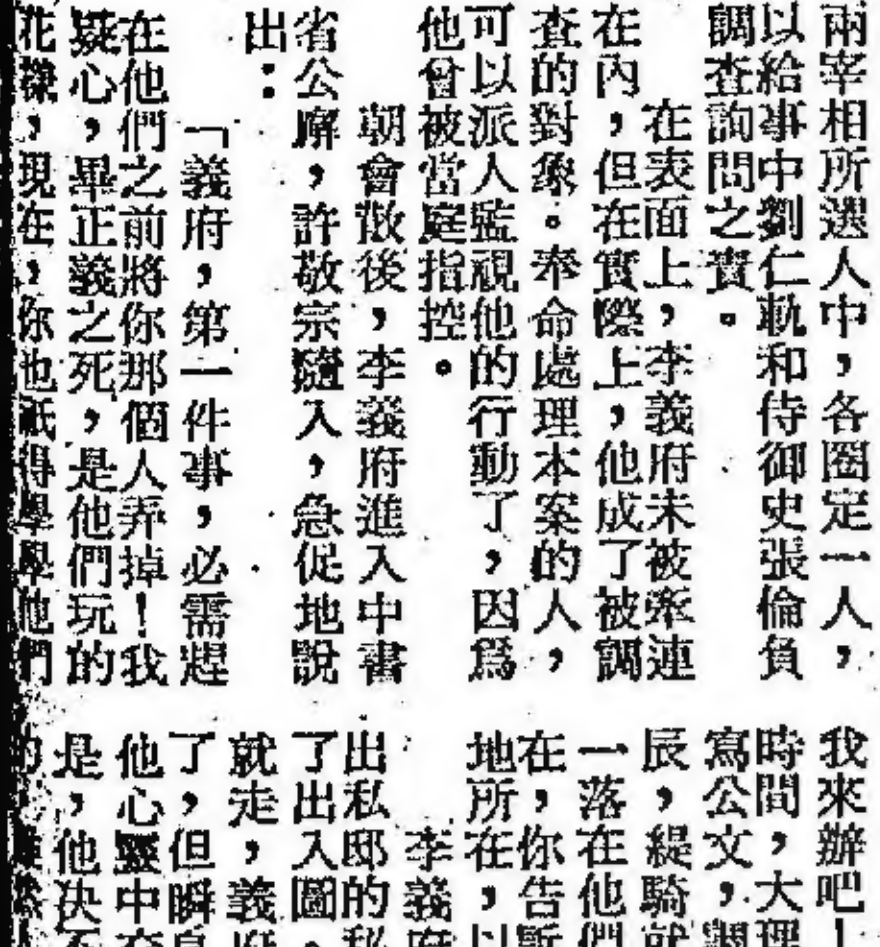 兩宰相所選人中，各圈定一人，
以給事中劉仁軌和侍御史張倫負
調查詢問之責。
在表面上，李義府未被牽連
在內，但在實際上，他成了被調
查的對象。奉命處理本案的人，
可以派人監視他的行動了，因爲
他曾被當庭指控。
朝會散後，李義府進入中書
省公廨，許敬宗隨入，急促地說
出：
「義府，第一件事，必需趕
在他們之前將你那個人弄掉！我
疑心，畢正義之死，是他們玩的
花樣，現在，你也祇得學學他們
我來辦吧！
時間，大理
寫公文，調
辰，緹騎就
一落在他們
在，你告訴
地所在，以
李義府
出私邸的私
了出入圖，
就走，義府
了，但瞬息
他心靈中
是，他決